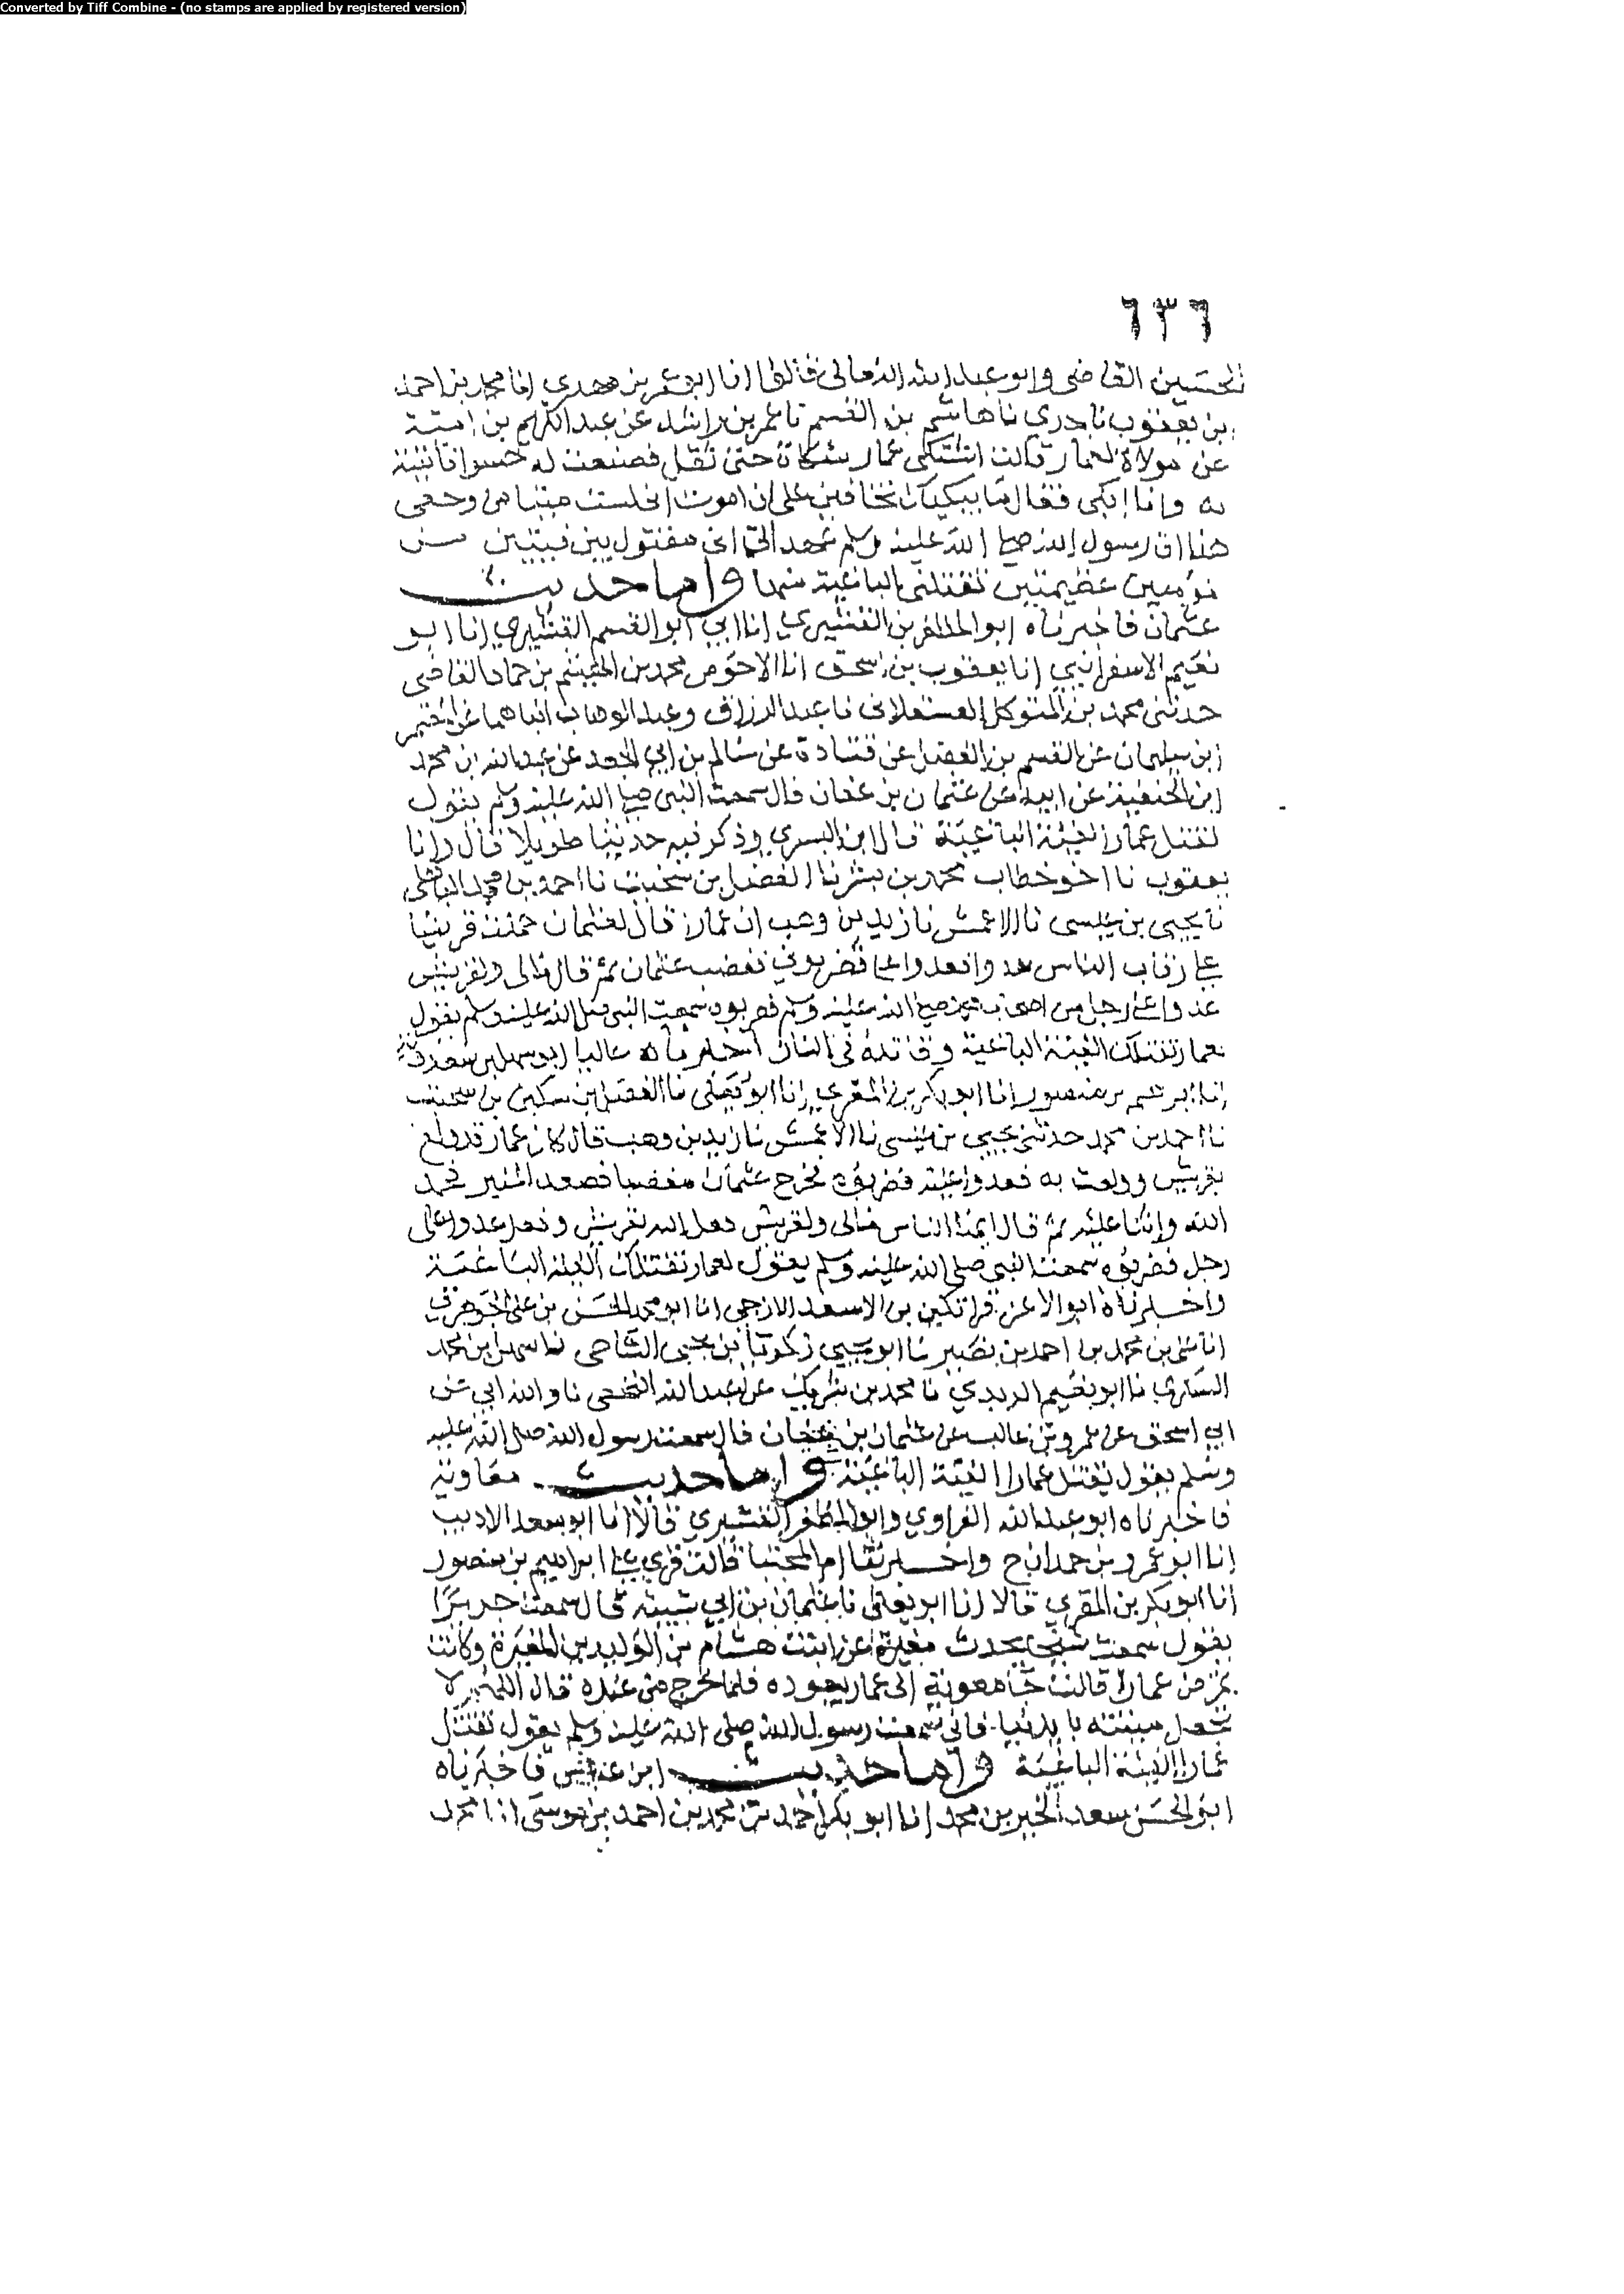 Converted by Tiff Combine - (no stamps are applied by registered version)
٦٣٦
الحسين القاضى وابو عبد الله قالوا انا ابو عمر بن مهدي انا محمد بن احمد
بن يعقوب نا جدي نا هاشم بن القسم نا عمر بن راشد عن عبد الكريم بن امية
عن مولاة لعمار قالت اشتكى عمار شكاة حتى ثقل فصنعت له حسوا فاتيته
به وانا ابكى فقال ما يبكيك تخافين على ان اموت انى لست ميتا من وجعى
هذا ان رسول الله صلى الله عليه وسلم عهد الى انى مقتول بين فئتين من
مؤمنين عظيمتين تقتلنى الباغية منهما واما حديث
عثمان فاخبرناه ابو المظفر بن القشيري انا ابي ابو القسم القشيري انا ابو
نعيم الاسفرائيني انا يعقوب بن اسحق انا الاحوص محمد بن الهيثم بن حماد القاضى
حدثنى محمد بن المتوكل العسقلانى نا عبد الرزاق وعبد الوهاب انباهما عن معتمر
ابن سليمان عن القسم بن الفضل عن قتادة عن سالم بن ابي الجعد عن عبد الله ابن محمد
ابن الحنفية عن ابيه عن عثمان بن عفان قال سمعت النبى صلى الله عليه وسلم يقول
تقتل عمارا الفئة الباغية قال ابن البسري وذكر فيه حديثا طويلا قال وانا
يعقوب نا اخو خطاب محمد بن بشر نا الفضل بن سخيت نا احمد بن محمد
نا يحيى بن عيسى نا الاعمش نا زيد بن وهب ان عمارا قال لعثمان حملت قريشا
على رقاب الناس عدوا فعدوا على فضربونى فغضب عثمان ثم قال مالى ولقريش
عدوا على رجل من اصحاب محمد صلى الله عليه وسلم فضربوه سمعت النبى صلى الله عليه وسلم يقول
لعمار تقتلك الفئة الباغية وقاتله فى النار اخبرناه عاليا ابو سهل بن سعدويه
انا ابرهيم بن منصور انا ابو بكر بن المقري انا ابو يعلى نا الفضل بن سكين بن سخيت
نا احمد بن محمد حدثنى يحيى بن عيسى نا الاعمش نا زيد بن وهب قال كان عمار قد ولع
بقريش وولعت به فعدوا عليه فضربوه فخرج عثمان مغضبا فصعد المنبر فحمد
الله واثنى عليه ثم قال ايها الناس مالى ولقريش فعل الله بقريش وفعل عدوا على
رجل فضربوه سمعت النبى صلى الله عليه وسلم يقول لعمار تقتلك الفئة الباغية
واخبرناه ابو الاعز قراتكين بن الاسعد الازجى انا ابو محمد الحسن بن على الجوهري
انا على بن محمد بن احمد بن نصير نا ابو يحيى زكريا بن يحيى الساجى نا سهل بن محمد
السكري نا ابو نعيم نا محمد بن شريك عن عبد الله النخعى نا والله ابى عن
ابي اسحق عن عمرو بن غالب عن عثمان بن عفان قال سمعت رسول الله صلى الله عليه
وسلم يقول يقتل عمارا الفئة الباغية واما حديث معاوية
فاخبرناه ابو عبد الله الفراوي وابو المظفر القشيري قالا انا ابو سعد الاديب
انا ابو عمرو بن حمدان ح واخبرتنا ام المجتبا قالت قري على ابراهيم بن منصور
انا ابو بكر بن المقري قالا انا ابو يعلى نا عثمان بن ابي شيبة قال سمعت جريرا
يقول سمعت شيخا يحدث مغيرة عن ابنت هشام بن الوليد بن المغيرة وكانت
تمرض عمارا قالت جا معوية الى عمار يعوده فلما خرج من عنده قال اللهم لا
تجعل ميتته بايدينا فانى سمعت رسول الله صلى الله عليه وسلم يقول تقتل
عمارا الفئة الباغية واما حديث ابن عباس فاخبرناه
ابو الحسن سعد الخير بن محمد انا ابو بكر احمد بن محمد بن احمد بن موسى انا محمد